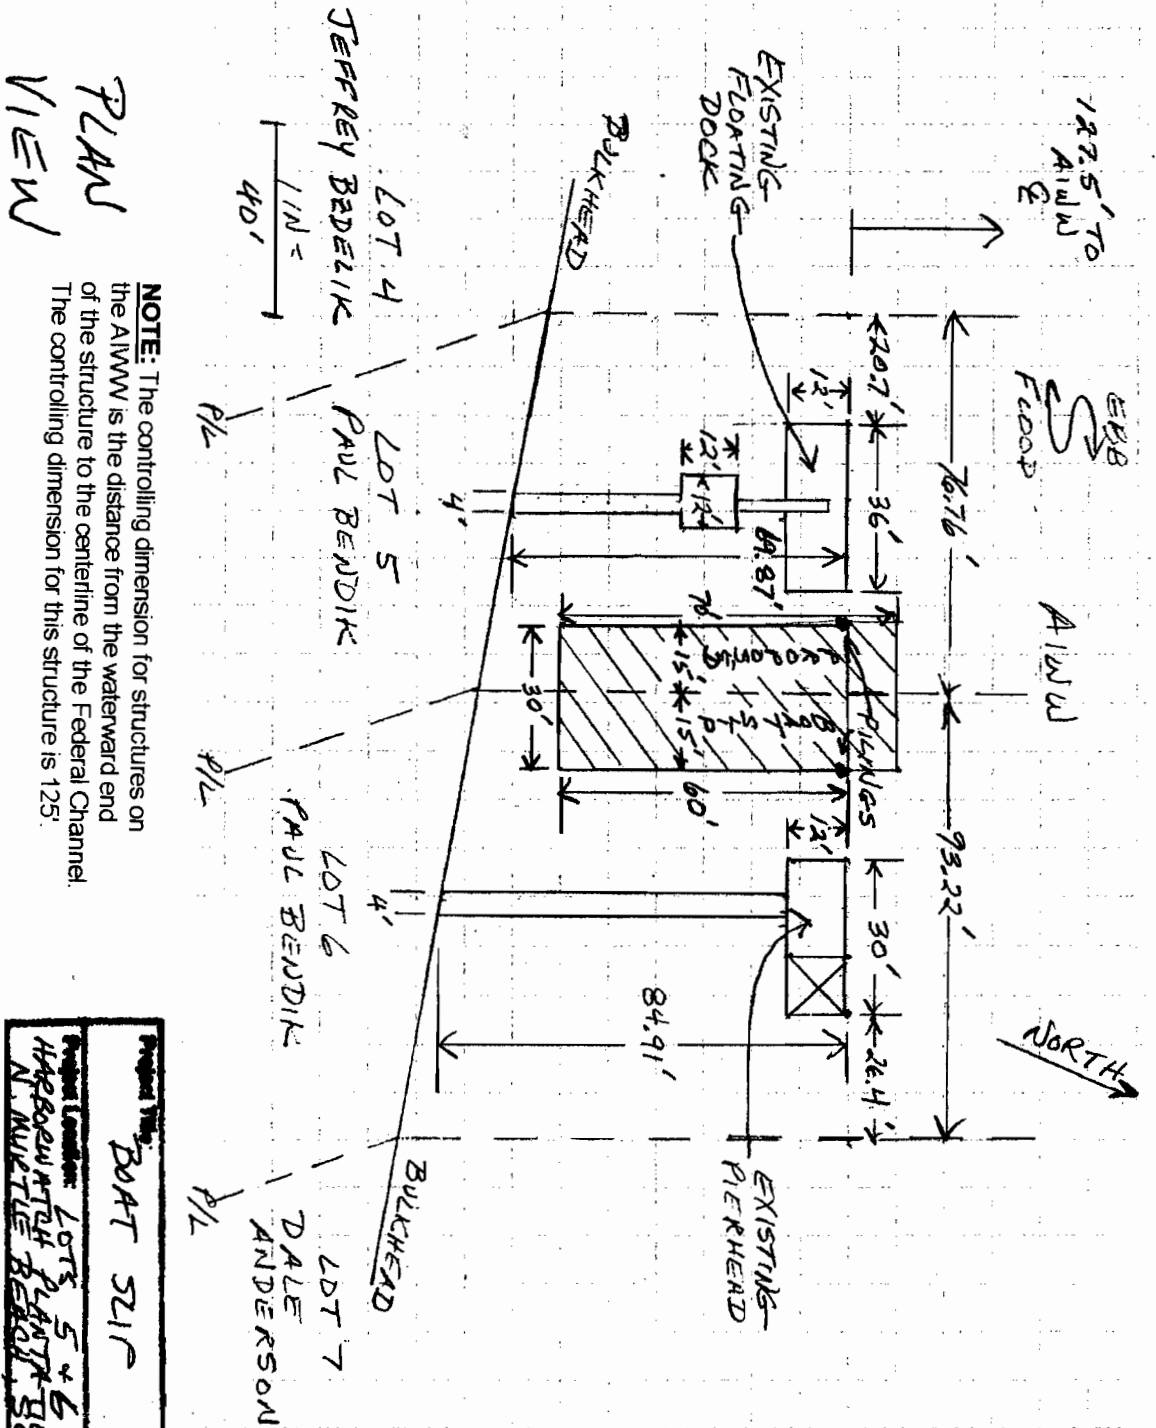 127.5' TO
AIWW
℄
EBB
FLOOD
AIWW
NORTH
76.76'
93.22'
20.7'
36'
30'
26.4'
12'
12'
EXISTING
FLOATING
DOCK
12'
12'
69.87'
70'
PROPOSED
BOAT SLIP
15'
15'
PILINGS
30'
60'
84.91'
EXISTING
PIERHEAD
BULKHEAD
BULKHEAD
4'
4'
LOT 4
JEFFREY BEDELIK
LOT 5
PAUL BENDIK
LOT 6
PAUL BENDIK
LOT 7
DALE
ANDERSON
P/L
P/L
P/L
1 IN =
40'
PLAN
VIEW
NOTE: The controlling dimension for structures on
the AIWW is the distance from the waterward end
of the structure to the centerline of the Federal Channel.
The controlling dimension for this structure is 125'.
Project Title:
BOAT SLIP
Project Location: LOTS 5 + 6
HARBORWATCH
N. MYRTLE BEACH, SC